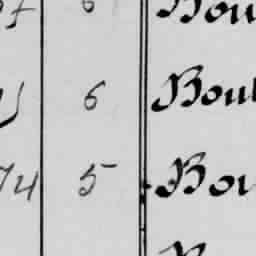 6 Bou
6 Boul
74 5 Bou